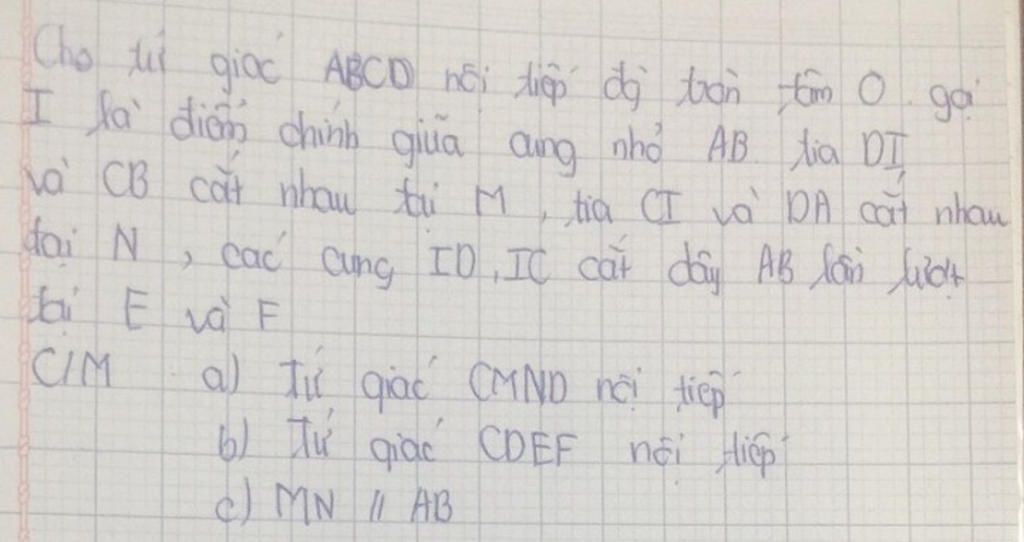 Cho tứ giác ABCD nội tiếp đg tròn tâm O. gọi
I là điểm chính giữa cung nhỏ AB tia DI
và CB cắt nhau tại M, tia CI và DA cắt nhau
tại N, các cung ID, IC cắt dây AB lần lượt
tại E và F
C/M a) Tứ giác CMND nội tiếp
b) Tứ giác CDEF nội tiếp
c) MN // AB